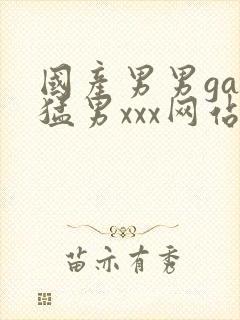 國產男男ga
猛男xxx网佔
苗亦有秀